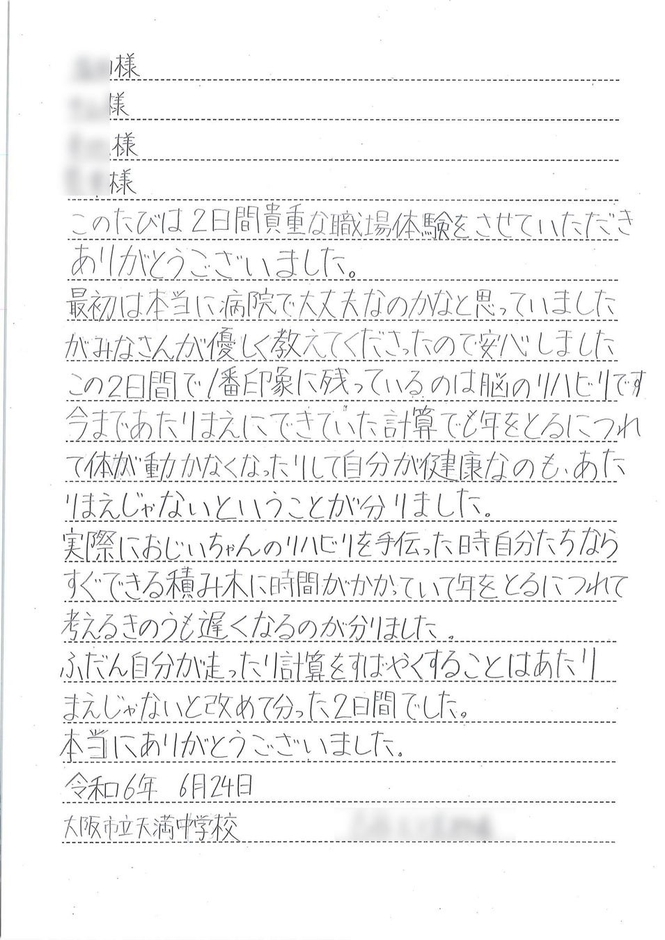 様
様
様
様
このたびは2日間貴重な職場体験をさせていただき
ありがとうございました。
最初は本当に病院で大丈夫なのかなと思っていました
がみなさんが優しく教えてくださったので安心しました
この2日間で1番印象に残っているのは脳のリハビリです
今まであたりまえにできていた計算でも年をとるにつれ
て体が動かなくなったりして自分が健康なのも、あた
りまえじゃないということが分りました。
実際におじいちゃんのリハビリを手伝った時自分たちなら
すぐできる積み木に時間がかかっていて年をとるにつれて
考えるきのうも遅くなるのが分りました。
ふだん自分が走ったり計算をすばやくすることはあたり
まえじゃないと改めて分った2日間でした。
本当にありがとうございました。
令和6年 6月24日
大阪市立天満中学校